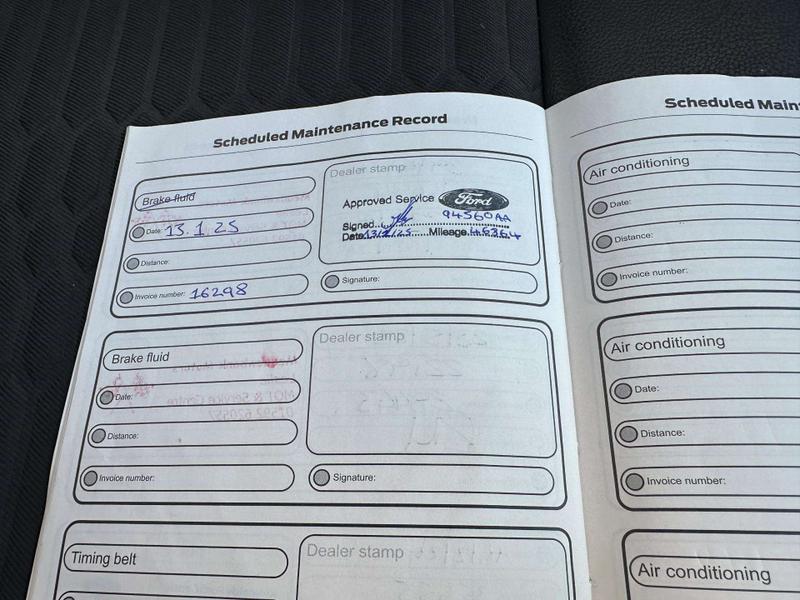 Scheduled Maintenance Record
Brake fluid
Date: 13.1.25
Distance:
Invoice number: 16298
Dealer stamp
Approved Service Ford
94560AA
Signed
Date 13/1/25 Mileage 46364
Signature:
Brake fluid
Date:
Distance:
Invoice number:
Dealer stamp
Signature:
Timing belt
Dealer stamp
Scheduled Main
Air conditioning
Date:
Distance:
Invoice number:
Air conditioning
Date:
Distance:
Invoice number:
Air conditioning